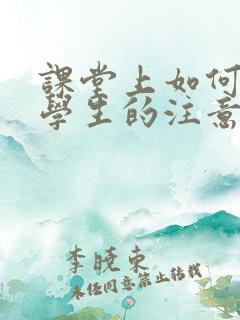 課堂上如何
學生的注意
李曉東
未經同意禁止轉載